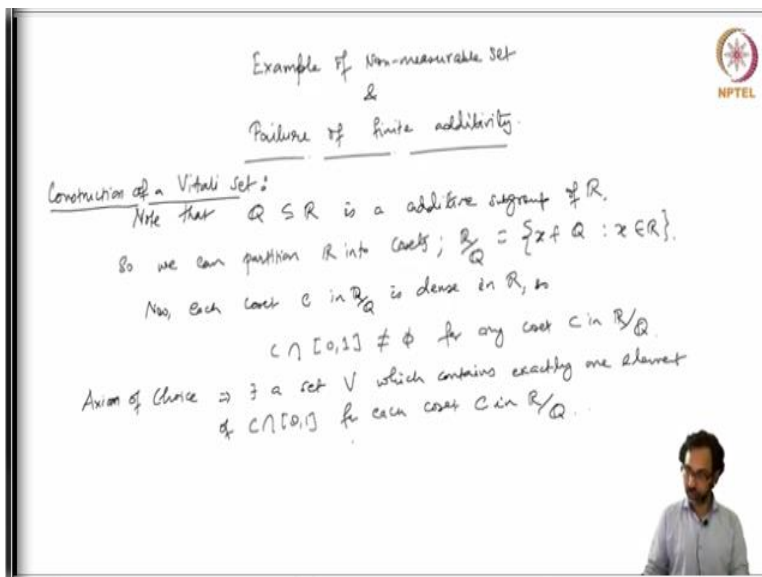 Example of Non-measurable set
&
Failure of finite additivity.
NPTEL
Construction of a Vitali set:
Note that Q ⊆ R is a additive subgroup of R.
So we can partition R into cosets; R/Q = {x + Q : x ∈ R}.
Now, each coset C in R/Q is dense in R, so
C ∩ [0,1] ≠ ϕ for any coset C in R/Q.
Axiom of Choice ⇒ ∃ a set V which contains exactly one element
of C ∩ [0,1] for each coset C in R/Q.